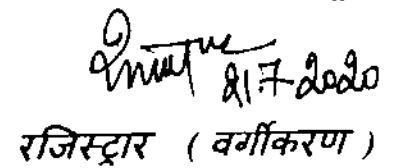 21.7.2020
रजिस्ट्रार ( वर्गीकरण )